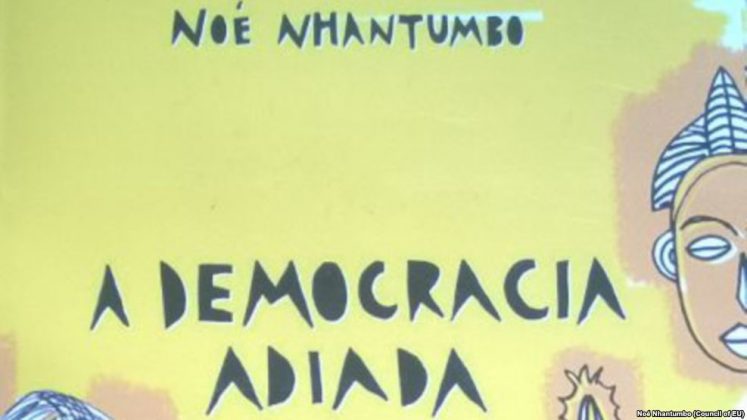 NOÉ NHANTUMBO
A DEMOCRACIA
ADIADA
Noé Nhantumbo (Council of EU)